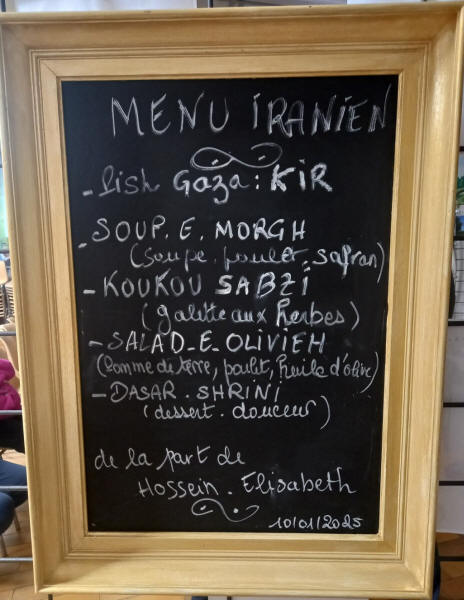 MENU IRANIEN
- Pish Gaza : KIR
- SOUP. E. MORGH
(Soupe. poulet. safran)
- KOUKOU SABZI
(galette aux herbes)
- SALAD_E_OLIVIEH
(Pomme de terre, poulet, huile d'olive)
- DASAR. SHRINI
(dessert. douceur)
de la part de
Hossein. Elisabeth
10/01/2025